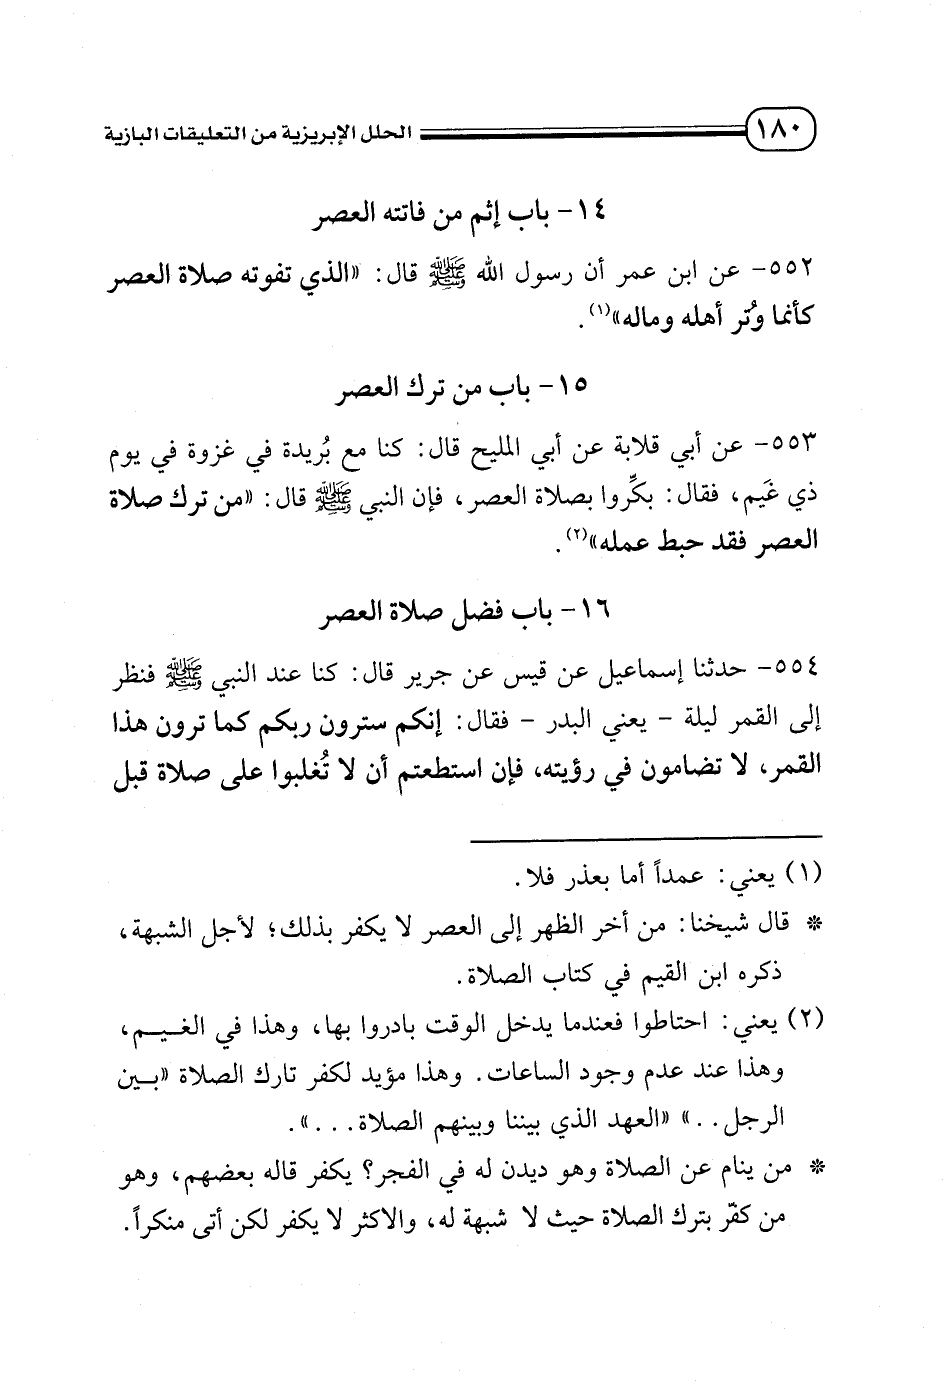 ١٨٠ الحلل الإبريزية من التعليقات البازية
١٤ - باب إثم من فاتته العصر
٥٥٢- عن ابن عمر أن رسول الله ﷺ قال: «الذي تفوته صلاة العصر
كأنما وُتر أهله وماله»(١).
١٥ - باب من ترك العصر
٥٥٣- عن أبي قلابة عن أبي المليح قال: كنا مع بُريدة في غزوة في يوم
ذي غَيم، فقال: بكِّروا بصلاة العصر، فإن النبي ﷺ قال: «من ترك صلاة
العصر فقد حبط عمله»(٢).
١٦ - باب فضل صلاة العصر
٥٥٤- حدثنا إسماعيل عن قيس عن جرير قال: كنا عند النبي ﷺ فنظر
إلى القمر ليلة - يعني البدر - فقال: إنكم سترون ربكم كما ترون هذا
القمر، لا تضامون في رؤيته، فإن استطعتم أن لا تُغلبوا على صلاة قبل
(١) يعني: عمداً أما بعذر فلا.
* قال شيخنا: من أخر الظهر إلى العصر لا يكفر بذلك؛ لأجل الشبهة،
ذكره ابن القيم في كتاب الصلاة.
(٢) يعني: احتاطوا فعندما يدخل الوقت بادروا بها، وهذا في الغيـم،
وهذا عند عدم وجود الساعات. وهذا مؤيد لكفر تارك الصلاة «بـين
الرجل..» «العهد الذي بيننا وبينهم الصلاة...».
* من ينام عن الصلاة وهو ديدن له في الفجر؟ يكفر قاله بعضهم، وهو
من كفّر بترك الصلاة حيث لا شبهة له، والاكثر لا يكفر لكن أتى منكراً.